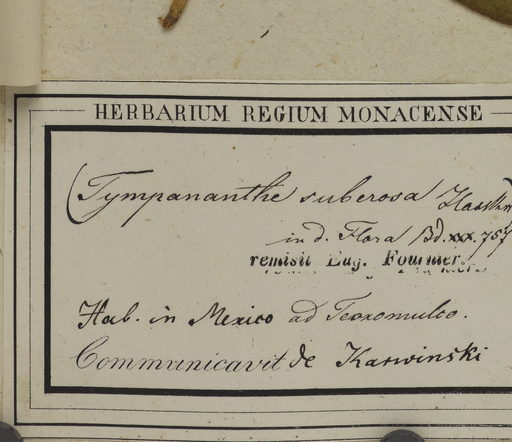 HERBARIUM REGIUM MONACENSE
(Tympananthe suberosa Hasskrl
in d. Flora Bd. xxx. 757
remisit Eug. Fournier.
Hab. in Mexico ad Teoxomulco.
Communicavit de Karwinski